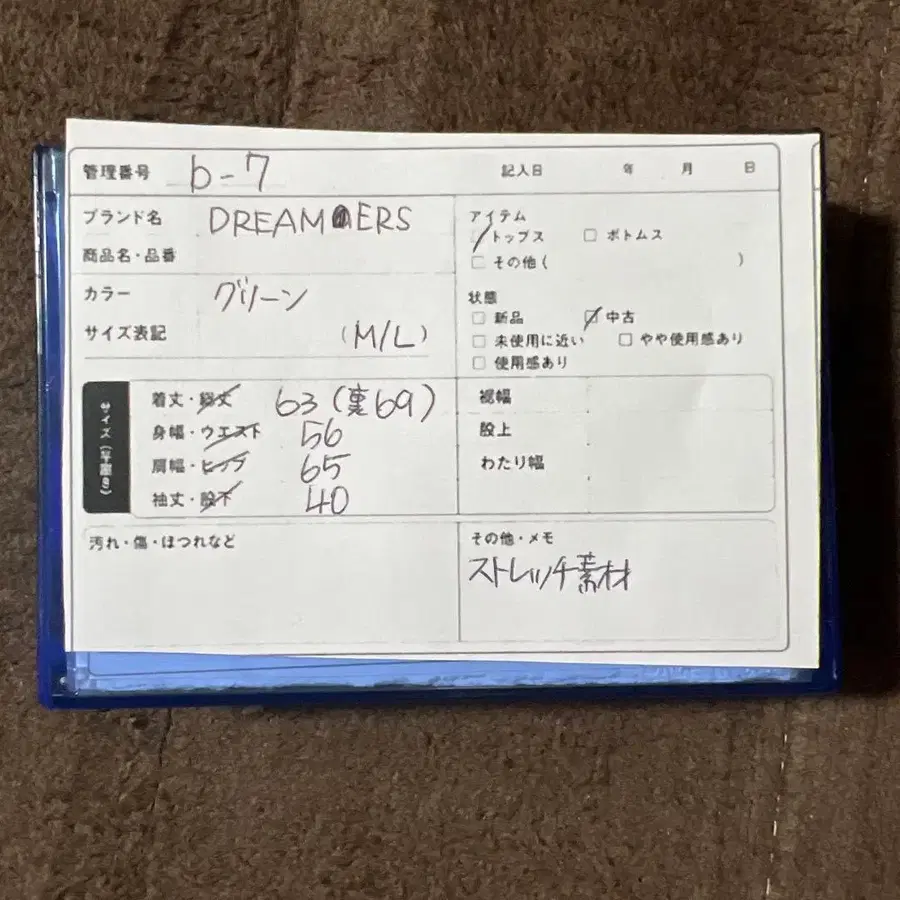 管理番号 b-7
記入日 年 月 日
ブランド名 DREAMERS
商品名・品番
カラー グリーン
サイズ表記 (M/L)
アイテム
トップス □ ボトムス
□ その他 ( )
状態
□ 新品 □ 中古
□ 未使用に近い □ やや使用感あり
□ 使用感あり
サイズ(平置き)
着丈・総丈 63(裏69)
身幅・ウエスト 56
肩幅・ヒップ 65
袖丈・股下 40
裾幅
股上
わたり幅
汚れ・傷・ほつれなど
その他・メモ
ストレッチ素材